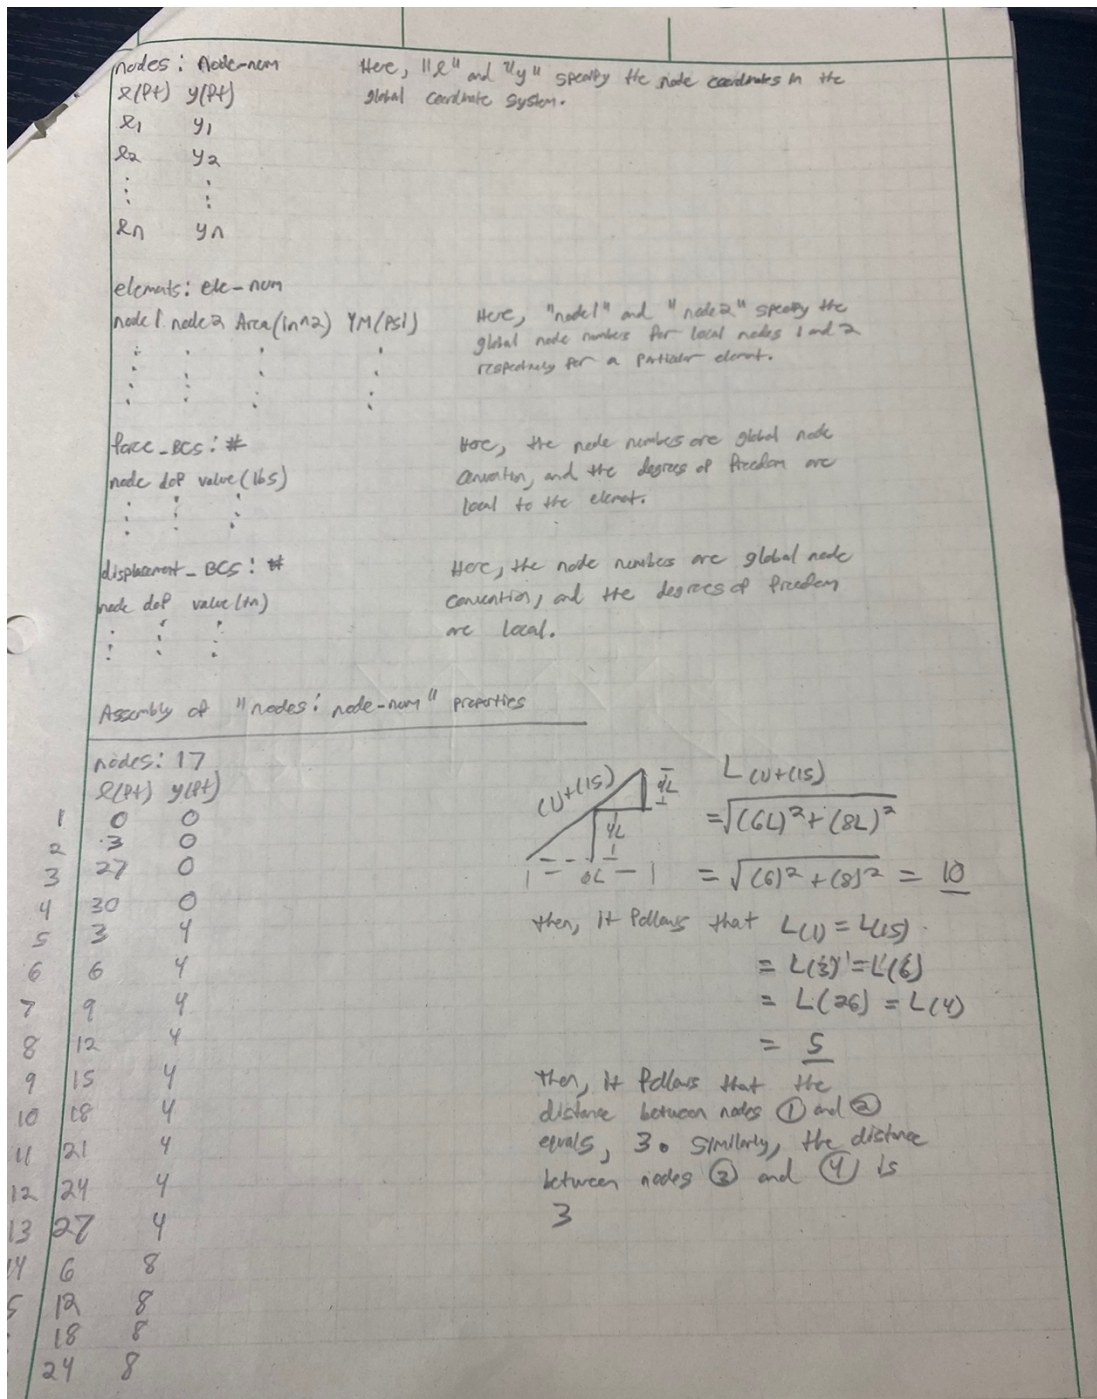 nodes: node-num
x(ft) y(ft)
x1 y1
x2 y2
: :
xn yn
Here, "x" and "y" specify the node coordinates in the
global coordinate system.
elements: ele-num
node1 node2 Area(in^2) YM(psi)
Here, "node1" and "node2" specify the
global node numbers for local nodes 1 and 2
respectively for a particular element.
force_BCs: #
node dof value(lbs)
Here, the node numbers are global node
convention, and the degrees of freedom are
local to the element.
displacement_BCs: #
node dof value(in)
Here, the node numbers are global node
convention, and the degrees of freedom
are local.
Assembly of "nodes: node-num" properties
nodes: 17
x(ft) y(ft)
1 0 0
2 3 0
3 27 0
4 30 0
5 3 4
6 6 4
7 9 4
8 12 4
9 15 4
10 18 4
11 21 4
12 24 4
13 27 4
14 6 8
5 12 8
18 8
24 8
(1)+(15)
4L
4L
6L
L(1)+(15)
=√(6L)²+(8L)²
=√(6)²+(8)² = 10
then, it follows that L(1)=L(15)
= L(3)=L(6)
= L(26) = L(4)
= 5
Then, it follows that the
distance between nodes ① and ②
equals, 3. Similarly, the distance
between nodes ③ and ④ is
3